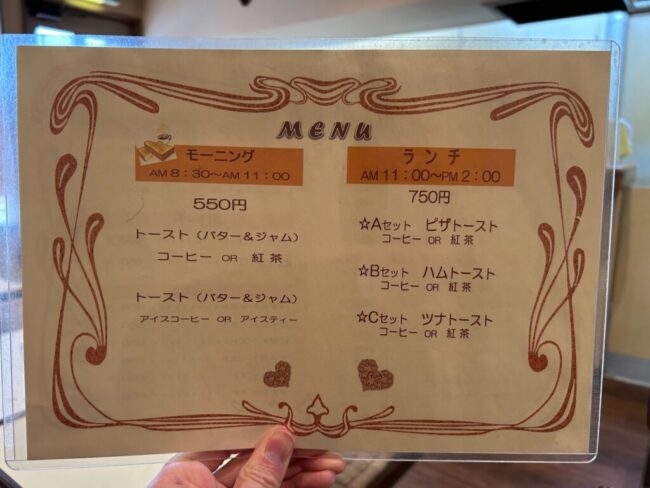 MENU
モーニング
AM 8：30～AM 11：00
550円
トースト（バター＆ジャム）
コーヒー OR 紅茶
トースト（バター＆ジャム）
アイスコーヒー OR アイスティー
ランチ
AM 11：00～PM 2：00
750円
☆Aセット ピザトースト
コーヒー OR 紅茶
☆Bセット ハムトースト
コーヒー OR 紅茶
☆Cセット ツナトースト
コーヒー OR 紅茶